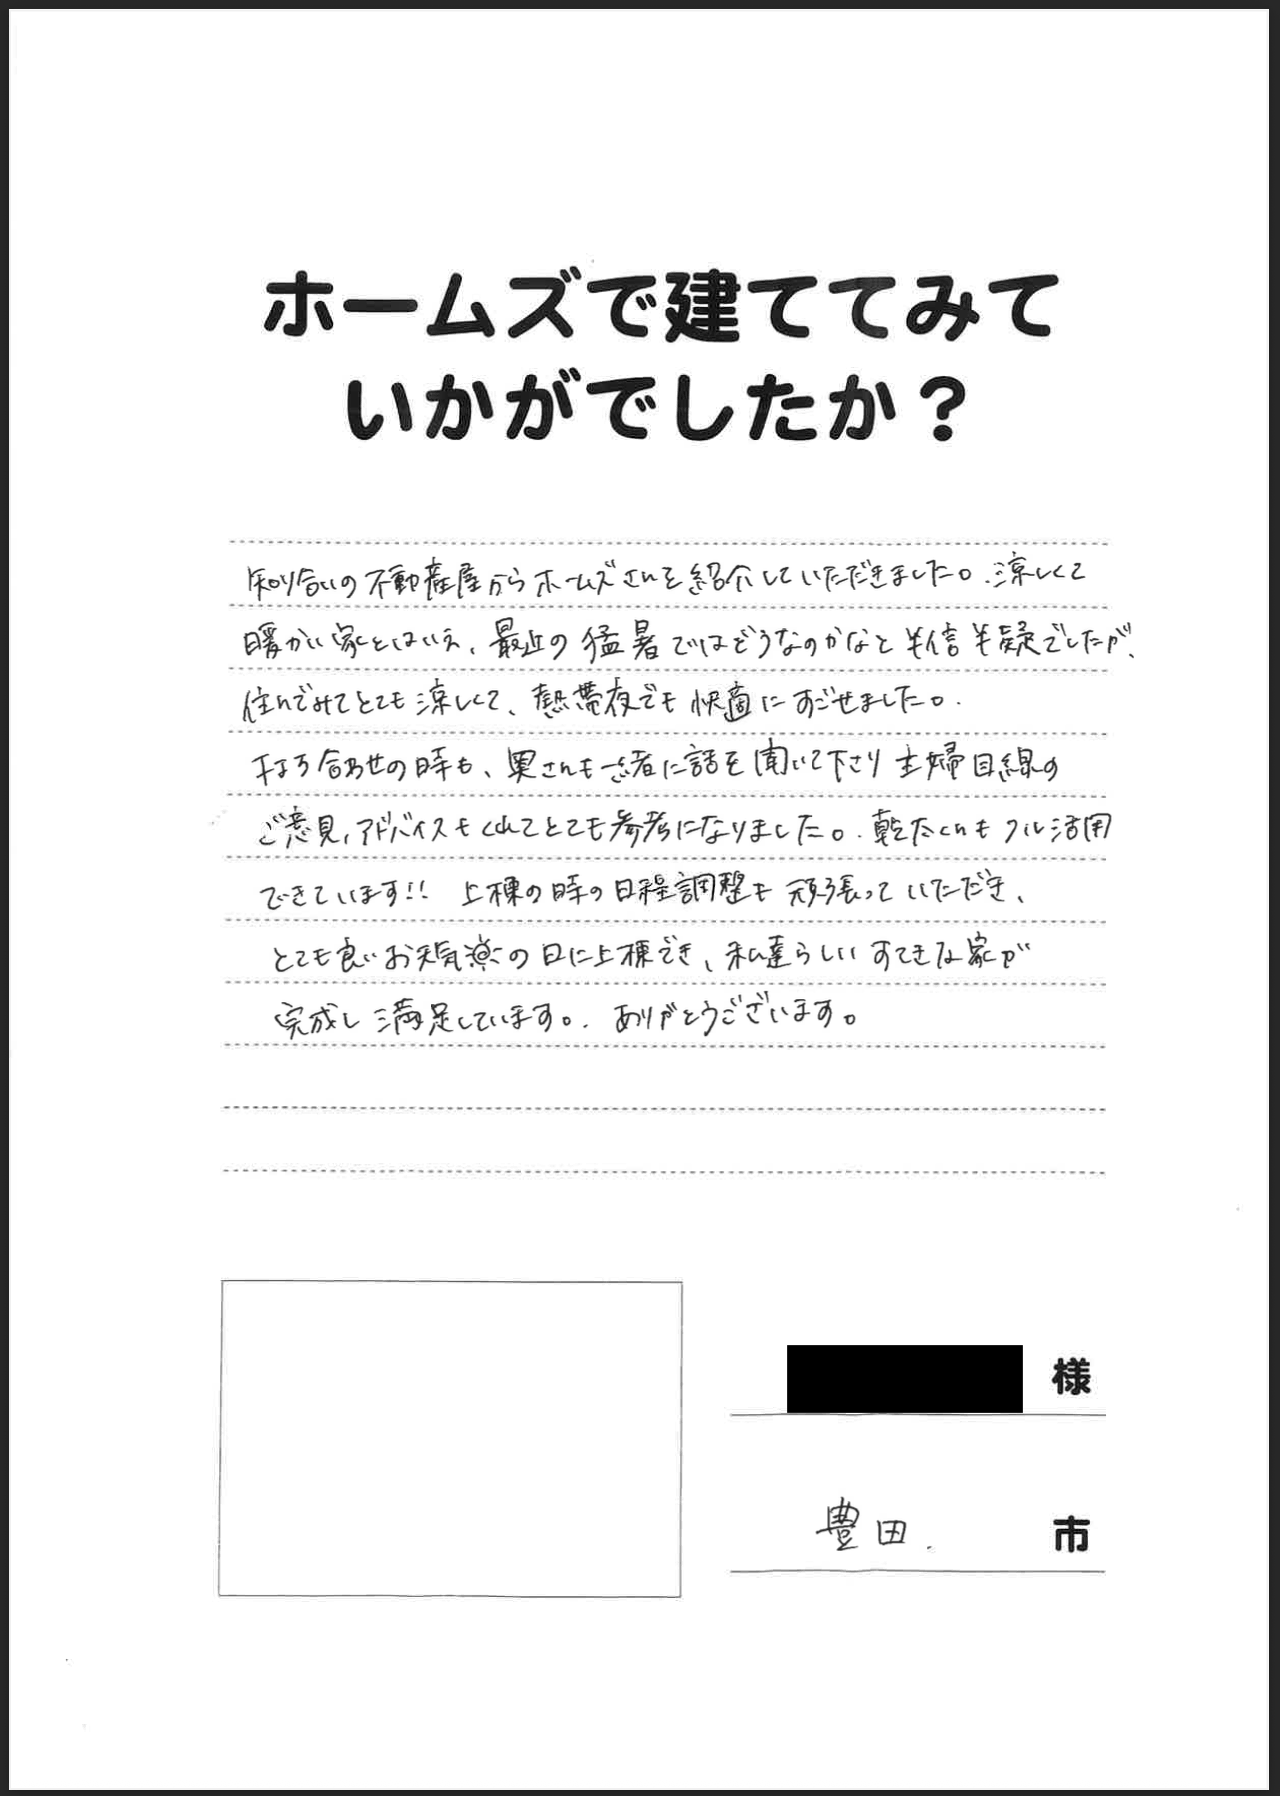 ホームズで建ててみて
いかがでしたか？
知り合いの不動産屋からホームズさんを紹介していただきました。涼しくて
暖かい家とはいえ、最近の猛暑ではどうなのかなと半信半疑でしたが、
住んでみてとても涼しくて、熱帯夜でも快適にすごせました。
打ち合わせの時も、奥さんも一緒に話を聞いて下さり主婦目線の
ご意見、アドバイスもくれてとても参考になりました。乾太くんもフル活用
できています!! 上棟の時の日程調整も頑張っていただき、
とても良いお天気の日に上棟でき、私達らしいすてきな家が
完成し満足しています。ありがとうございます。
様
豊田. 市